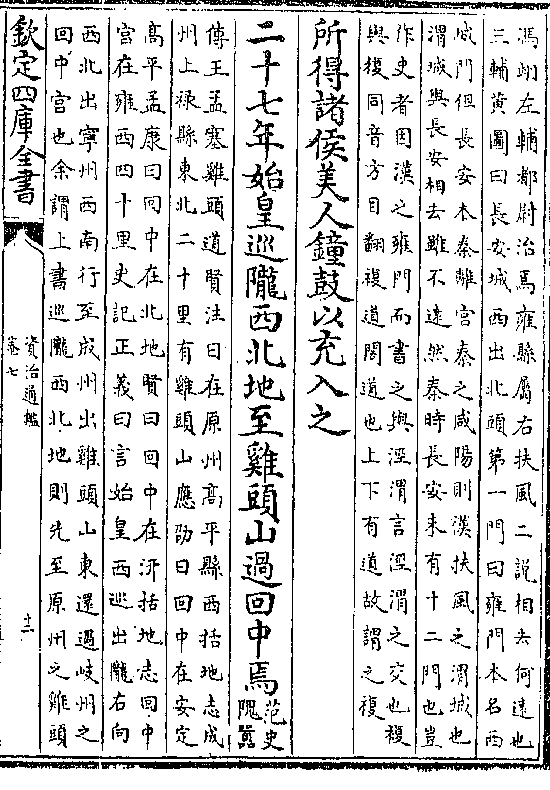 馮翊左輔都尉治焉雍縣屬右扶風二說相去何遠也
三輔黄圖曰長安城西出北頭第一門曰雍門本名西
城門但長安本秦離宮秦之咸陽則漢扶風之渭城也
渭城與長安相去雖不逺然秦時長安未有十二門也豈
作史者因漢之雍門而書之與涇渭言涇渭之交也複
與復同音方目翻複道閣道也上下有道故謂之複
所得諸侯美人鐘鼓以充入之
二十七年始皇巡隴西北地至雞頭山過回中焉范史
隗囂
傳王孟塞雞頭道賢注曰在原州髙平縣西括地志成
州上禄縣東北二十里有雞頭山應劭曰回中在安定
髙平孟康曰回中在北地賢曰回中在汧括地志回中
宮在雍西四十里史記正義曰言始皇西巡出隴右向
西北出寧州西南行至成州出雞頭山東還過岐州之
回中宮也余謂上書巡隴西北地則先至原州之雞頭
欽定四庫全書
資治通鑑
卷七
十二